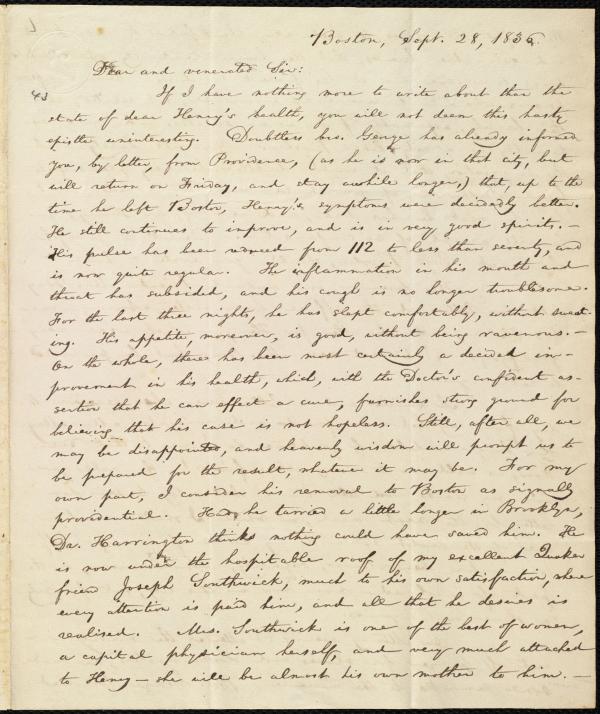 Boston, Sept. 28, 1836.
Dear and venerated Sir:
43
If I have nothing more to write about than the
state of dear Henry's health, you will not deem this hasty
epistle uninteresting. Doubtless bro. George has already informed
you, by letter, from Providence, (as he is now in that city, but
will return on Friday, and stay awhile longer,) that, up to the
time he left Boston, Henry's symptoms were decidedly better.
He still continues to improve, and is in very good spirits. —
His pulse has been reduced from 112 to less than seventy, and
is now quite regular. The inflammation in his mouth and
throat has subsided, and his cough is no longer troublesome.
For the last three nights, he has slept comfortably, without sweat-
ing. His appetite, moreover, is good, without being ravenous. —
On the whole, there has been most certainly a decided im-
provement in his health, which, with the Doctor's confident as-
sertion that he can effect a cure, furnishes strong ground for
believing that his case is not hopeless. Still, after all, we
may be disappointed, and heavenly wisdom will prompt us to
be prepared for the result, whatever it may be. For my
own part, I consider his removal to Boston as signally
providential. Had he tarried a little longer in Brooklyn,
Dr. Harrington thinks nothing could have saved him. He
is now under the hospitable roof of my excellent Quaker
friend Joseph Southwick, much to his own satisfaction, where
every attention is paid him, and all that he desires is
realised. Mrs. Southwick is one of the best of women,
a capital physician herself, and very much attached
to Henry — she will be almost his own mother to him. —